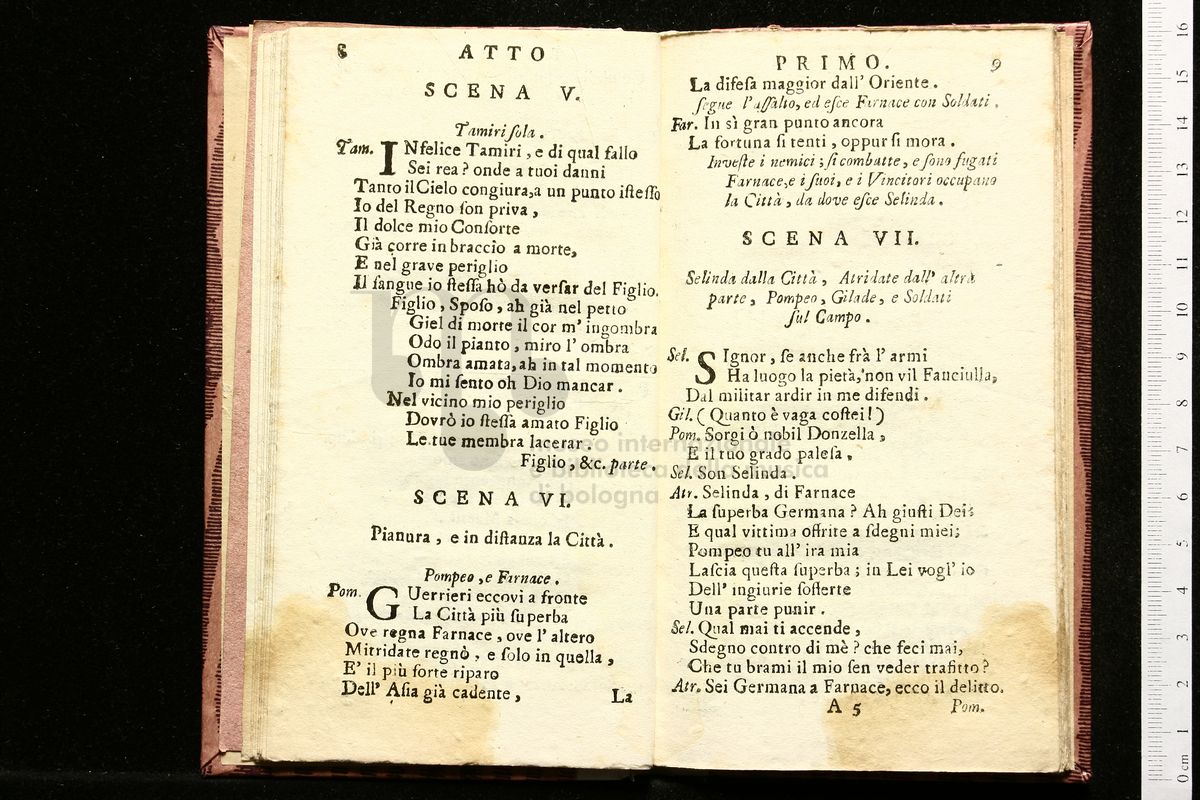 8 ATTO
SCENA V.
Tamiri sola.
Tam. INfelice Tamiri, e di qual fallo
Sei rea? onde a tuoi danni
Tanto il Cielo congiura, a un punto iſteſſo
Io del Regno ſon priva,
Il dolce mio Conſorte
Già corre in braccio a morte,
E nel grave periglio
Il ſangue io ſteſſa hò da verſar del Figlio.
Figlio, Spoſo, ah già nel petto
Giel di morte il cor m' ingombra
Odo il pianto, miro l' ombra
Ombra amata, ah in tal momento
Io mi ſento oh Dio mancar.
Nel vicino mio periglio
Dovrò io ſteſſa amato Figlio
Le tue membra lacerar.
Figlio, &c. parte.
SCENA VI.
Pianura, e in diſtanza la Città.
Pompeo, e Farnace.
Pom. GUerrieri eccovi a fronte
La Città più ſuperba
Ove regna Farnace, ove l' altero
Mitridate regnò, e ſolo in quella,
E' il più forte riparo
Dell' Aſia già cadente,
La
PRIMO. 9
La difeſa maggior dall' Oriente.
ſegue l'aſſalto, ed eſce Farnace con Soldati.
Far. In sì gran punto ancora
La fortuna ſi tenti, oppur ſi mora.
Inveſte i nemici; ſi combatte, e ſono fugati
Farnace, e i ſuoi, e i Vincitori occupano
la Città, da dove eſce Selinda.
SCENA VII.
Selinda dalla Città, Atridate dall' altra
parte, Pompeo, Gilade, e Soldati
ſul Campo.
Sel. SIgnor, ſe anche frà l' armi
Ha luogo la pietà, non vil Fanciulla,
Dal militar ardir in me difendi.
Gil. (Quanto è vaga coſtei!)
Pom. Sorgi ò nobil Donzella,
E il tuo grado paleſa,
Sel. Son Selinda.
Atr. Selinda, di Farnace
La ſuperba Germana? Ah giuſti Dei;
E qual vittima offrite a ſdegni miei;
Pompeo tu all' ira mia
Laſcia queſta ſuperba; in Lei vogl' io
Dell' ingiurie ſofferte
Una parte punir.
Sel. Qual mai ti accende,
Sdegno contro di mè? che feci mai,
Che tu brami il mio ſen veder trafitto?
Atr. Sei Germana a Farnace, ecco il delitto.
A 5 Pom.
museo internazionale
e biblioteca della musica
di bologna
0 cm 1 2 3 4 5 6 7 8 9 10 11 12 13 14 15 16